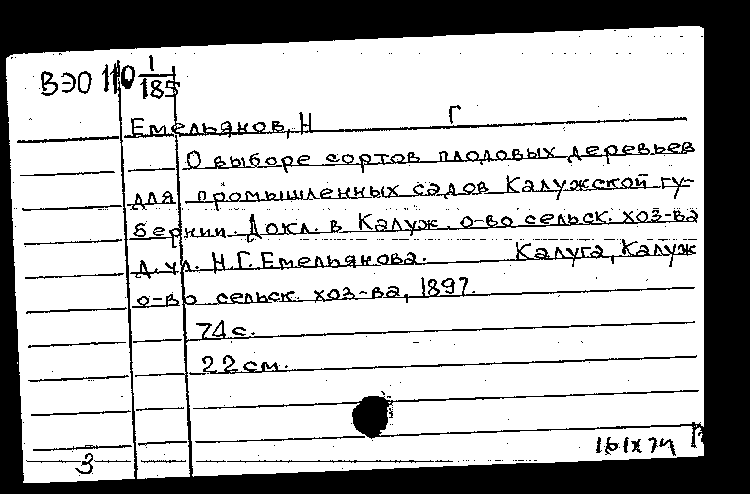 ВЭО 110 1/185
Емельянов, Н Г
О выборе сортов плодовых деревьев
для промышленных садов Калужской гу-
бернии. Докл. в Калуж. о-во сельск. хоз-ва
д. чл. Н.Г. Емельянова. Калуга, Калуж
о-во сельск. хоз-ва, 1897.
74 с.
22 см.
3